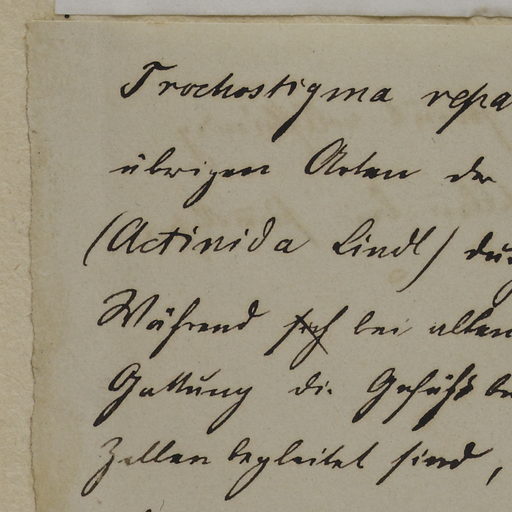 Trochostigma repa
übrigen Arten der
(Actinida Lindl) du
Während sich bei allen
Gattung die Gefäßbe
Zellen begleitet sind,